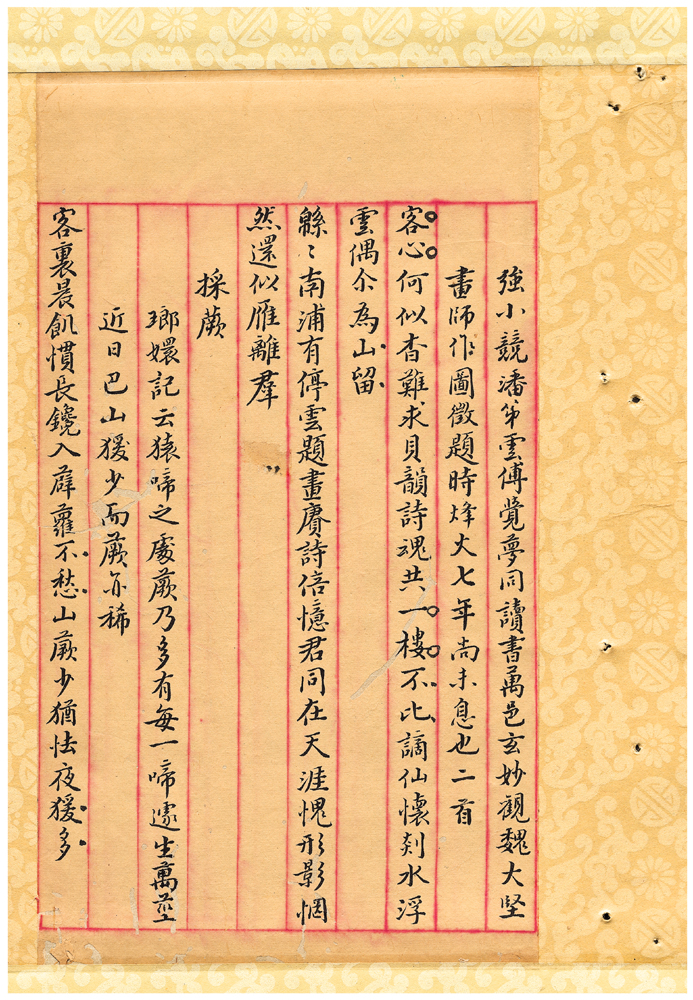 強小競潘弟雲傅覺夢同讀書萬邑玄妙觀魏大堅
畫師作圖徵題時烽火七年尚未息也二首
客心何似杳難求貝韻詩魂共一樓不比謫仙懷剡水浮
雲偶尒為山留
緜〻南浦有停雲題畫賡詩倍憶君同在天涯愧形影惘
然還似雁離羣
採蕨
瑯嬛記云猿啼之處蕨乃多有每一啼遽生萬莖
近日巴山猨少而蕨亦稀
客裏晨飢慣長鑱入薜蘿不愁山蕨少猶怯夜猨多